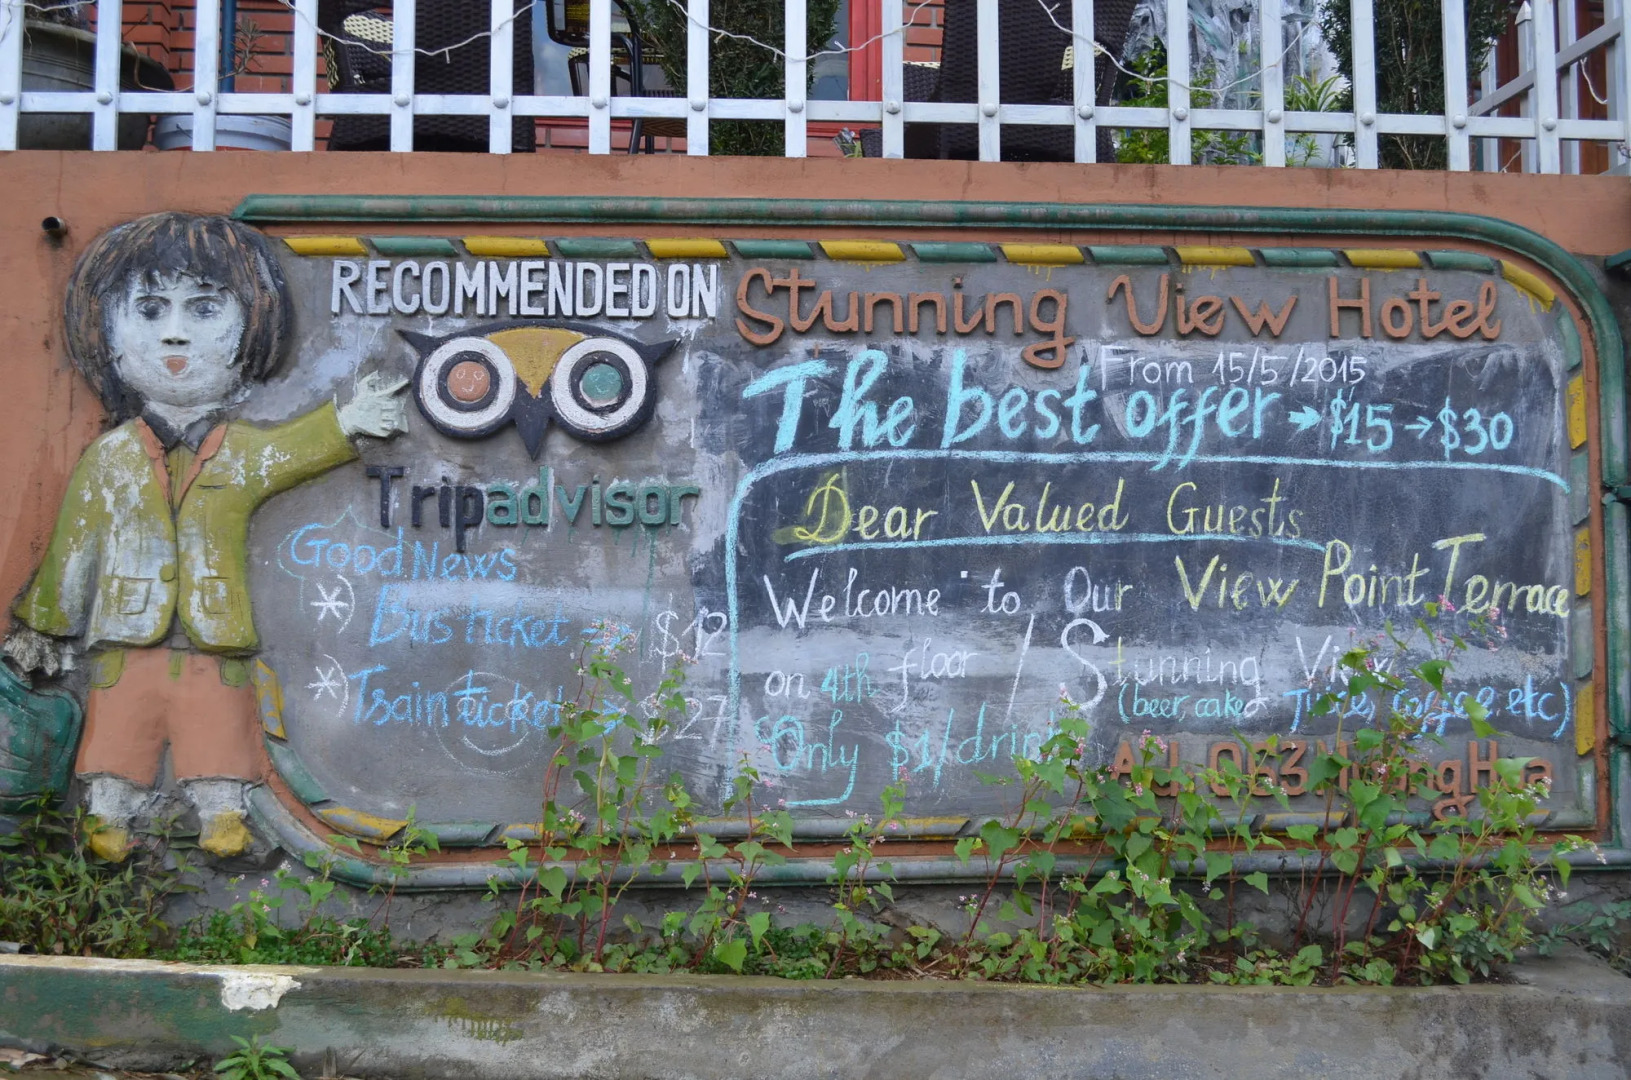 RECOMMENDED ON
Tripadvisor
Good News
*) Bus ticket → $12
*) Train ticket → $27
Stunning View Hotel
From 15/5/2015
The best offer → $15 → $30
Dear Valued Guests
Welcome to Our View Point Terrace
on 4th floor / Stunning View
(beer, cake, Juice, coffee. etc)
Only $1/drink
063